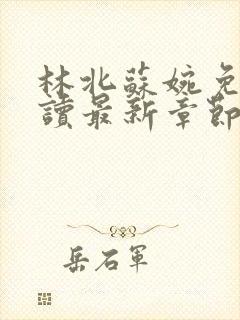 林北蘇婉免
讀最新章節
岳石軍